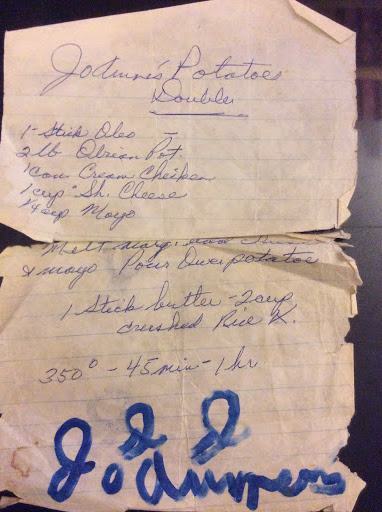 JoAnne's Potatoes
Double
1- Stick Oleo
2 lb Obrian Pot.
1 can Cream Chicken
1 cup Sh. Cheese
1/4 cup Mayo
Melt marg. and
& mayo Pour Over potatoes
1 Stick butter - 2 cup
crushed Rice K.
350° - 45 min - 1 hr